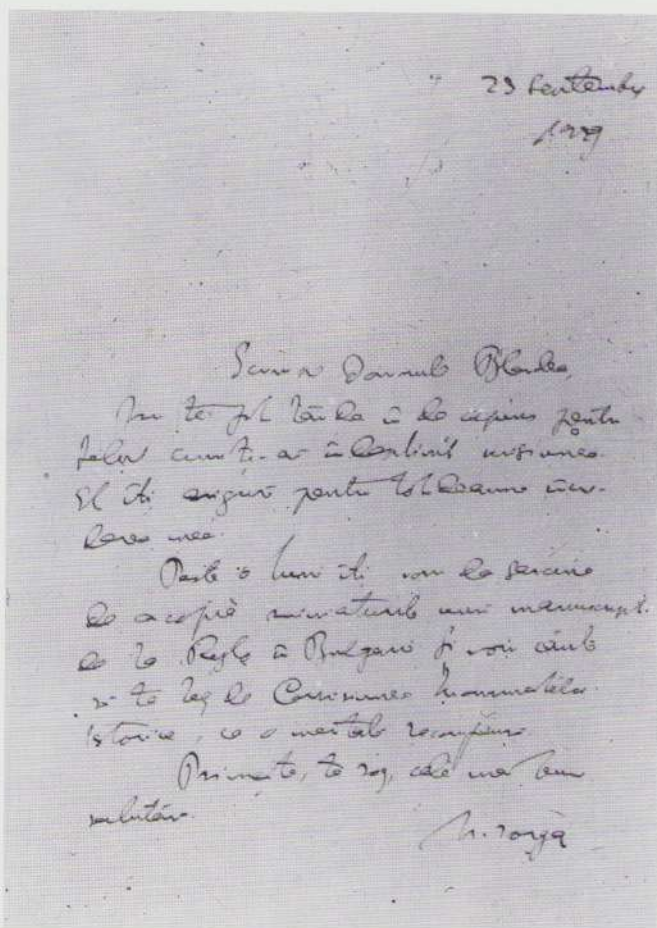 23 Septembre
1929
Domnule Blendea,
Nu te pot lăuda în de ajuns pentru
felul cum ți-ai îndeplinit misiunea.
El îți asigură pentru totdeauna încre-
derea mea.
Peste o lună îți voiu da sarcina
de a copia miniaturile unui manuscript
de la Ryla în Bulgaria și voiu căuta
să te leg de Comisiunea Monumentelor
Istorice, ca o meritată recompensă.
Primește, te rog, cele mai bune
salutări.
N. Iorga